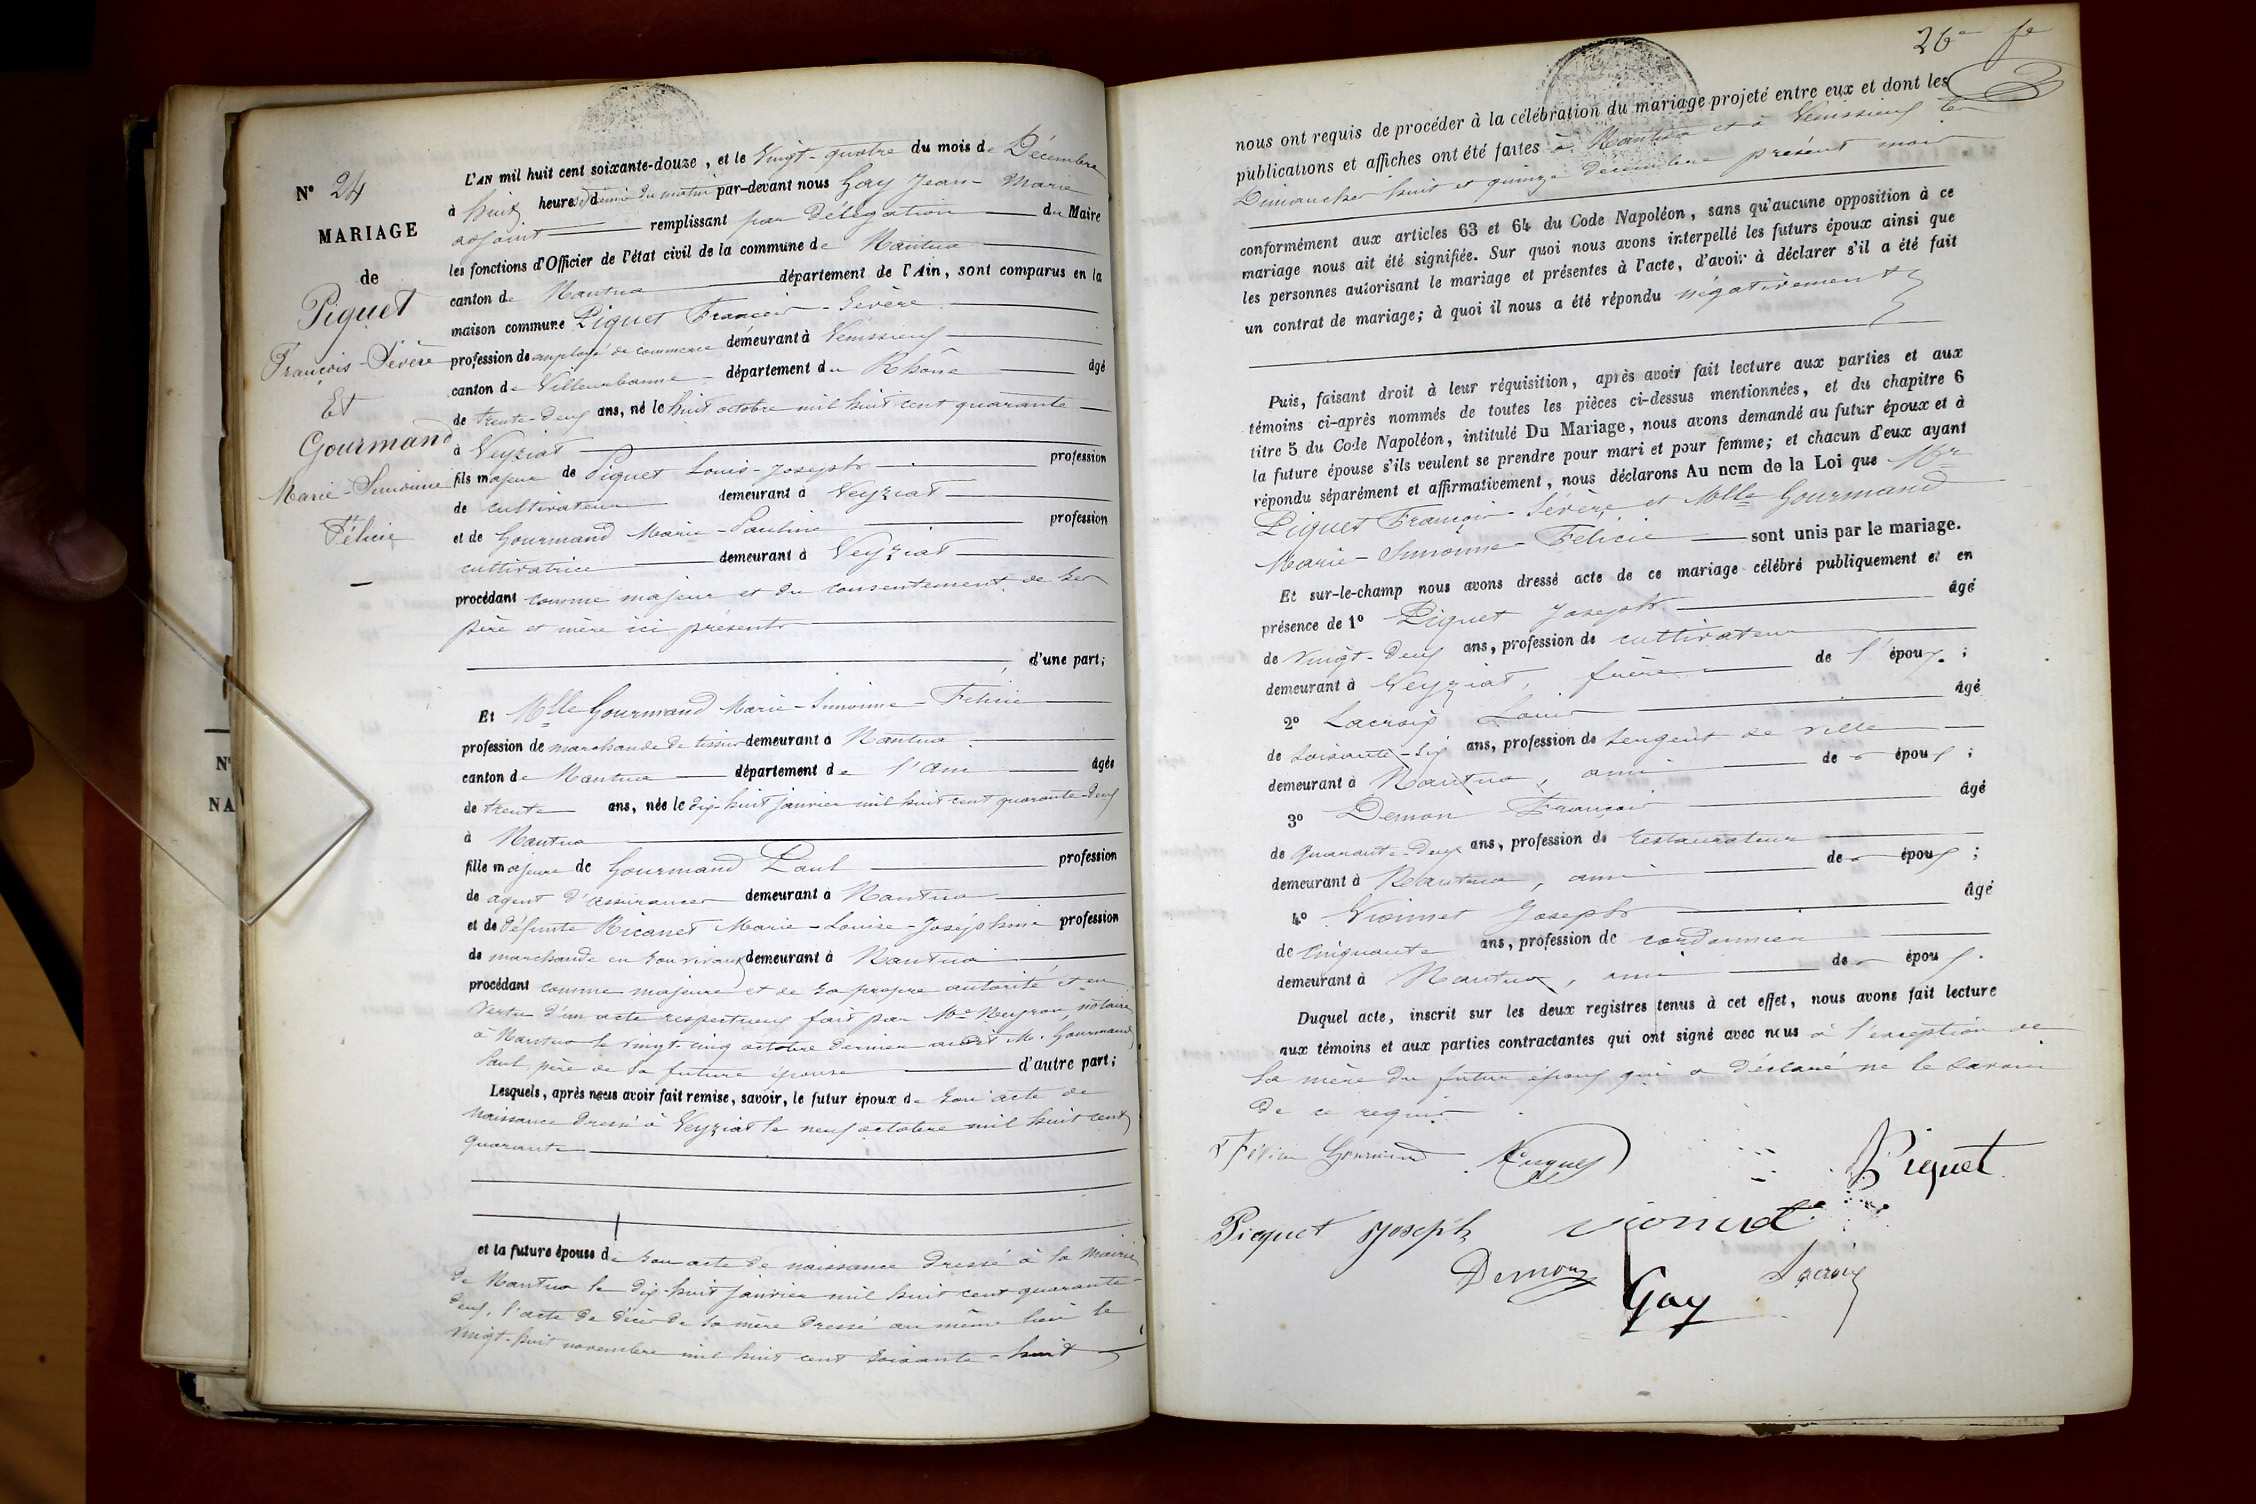 N° 24
MARIAGE
de
Piquet
François-Sévère
Et
Gourmand
Marie-Simonne
Félicie
L'AN mil huit cent soixante-douze, et le Vingt-quatre du mois de Décembre
à huit heures et demie du matin par-devant nous Gay Jean-Marie
adjoint remplissant par Délégation du Maire
les fonctions d'Officier de l'état civil de la commune de Nantua
canton de Nantua département de l'Ain, sont comparus en la
maison commune Piquet François-Sévère
profession de employé de commerce demeurant à Venissieux
canton de Villeurbanne département du Rhône âgé
de trente-deux ans, né le huit octobre mil huit cent quarante
à Veyziat
fils majeur de Piquet Louis-Joseph profession
de cultivateur demeurant à Veyziat
et de Gourmand Marie-Pauline profession
cultivatrice demeurant à Veyziat
procédant comme majeur et du consentement de ses
père et mère ici présents
d'une part;
Et Mlle Gourmand Marie-Simonne-Félicie
profession de marchande de tissus demeurant à Nantua
canton de Nantua département de l'Ain âgée
de trente ans, née le dix-huit janvier mil huit cent quarante-deux
à Nantua
fille majeure de Gourmand Paul profession
de agent d'assurances demeurant à Nantua
et de défunte Ricanet Marie-Louise-Joséphine profession
de marchande en son vivant demeurant à Nantua
procédant comme majeure et de sa propre autorité et en
vertu d'un acte respectueux fait par Me Neyron, notaire
à Nantua le vingt-cinq octobre dernier audit M. Gourmand
Paul père de la future épouse d'autre part;
Lesquels, après nous avoir fait remise, savoir, le futur époux de son acte de
naissance dressé à Veyziat le neuf octobre mil huit cent
quarante
et la future épouse de son acte de naissance dressé à la mairie
de Nantua le dix-huit janvier mil huit cent quarante-
deux, l'acte de décès de sa mère dressé au même lieu le
vingt-huit novembre mil huit cent soixante-huit
26e fe
nous ont requis de procéder à la célébration du mariage projeté entre eux et dont les
publications et affiches ont été faites à Nantua et à Venissieux les
Dimanches huit et quinze décembre présent mois
conformément aux articles 63 et 64 du Code Napoléon, sans qu'aucune opposition à ce
mariage nous ait été signifiée. Sur quoi nous avons interpellé les futurs époux ainsi que
les personnes autorisant le mariage et présentes à l'acte, d'avoir à déclarer s'il a été fait
un contrat de mariage; à quoi il nous a été répondu négativement
Puis, faisant droit à leur réquisition, après avoir fait lecture aux parties et aux
témoins ci-après nommés de toutes les pièces ci-dessus mentionnées, et du chapitre 6
titre 5 du Code Napoléon, intitulé Du Mariage, nous avons demandé au futur époux et à
la future épouse s'ils veulent se prendre pour mari et pour femme; et chacun d'eux ayant
répondu séparément et affirmativement, nous déclarons Au nom de la Loi que Mr
Piquet François-Sévère et Mlle Gourmand
Marie-Simonne-Félicie sont unis par le mariage.
Et sur-le-champ nous avons dressé acte de ce mariage célébré publiquement et en
présence de 1° Piquet Joseph âgé
de vingt-deux ans, profession de cultivateur
demeurant à Veyziat, frère de l'époux;
2° Lacroix Louis âgé
de soixante-six ans, profession de sergent de ville
demeurant à Nantua, ami des époux;
3° Demon François âgé
de quarante-deux ans, profession de restaurateur
demeurant à Nantua, ami des époux;
4° Vionnet Joseph âgé
de cinquante ans, profession de cordonnier
demeurant à Nantua, ami des époux.
Duquel acte, inscrit sur les deux registres tenus à cet effet, nous avons fait lecture
aux témoins et aux parties contractantes qui ont signé avec nous à l'exception de
la mère du futur époux qui a déclaré ne le savoir
de ce requis
Félicie Gourmand
Piquet
Piquet Joseph Vionnet
Demon Lacroix
Gay